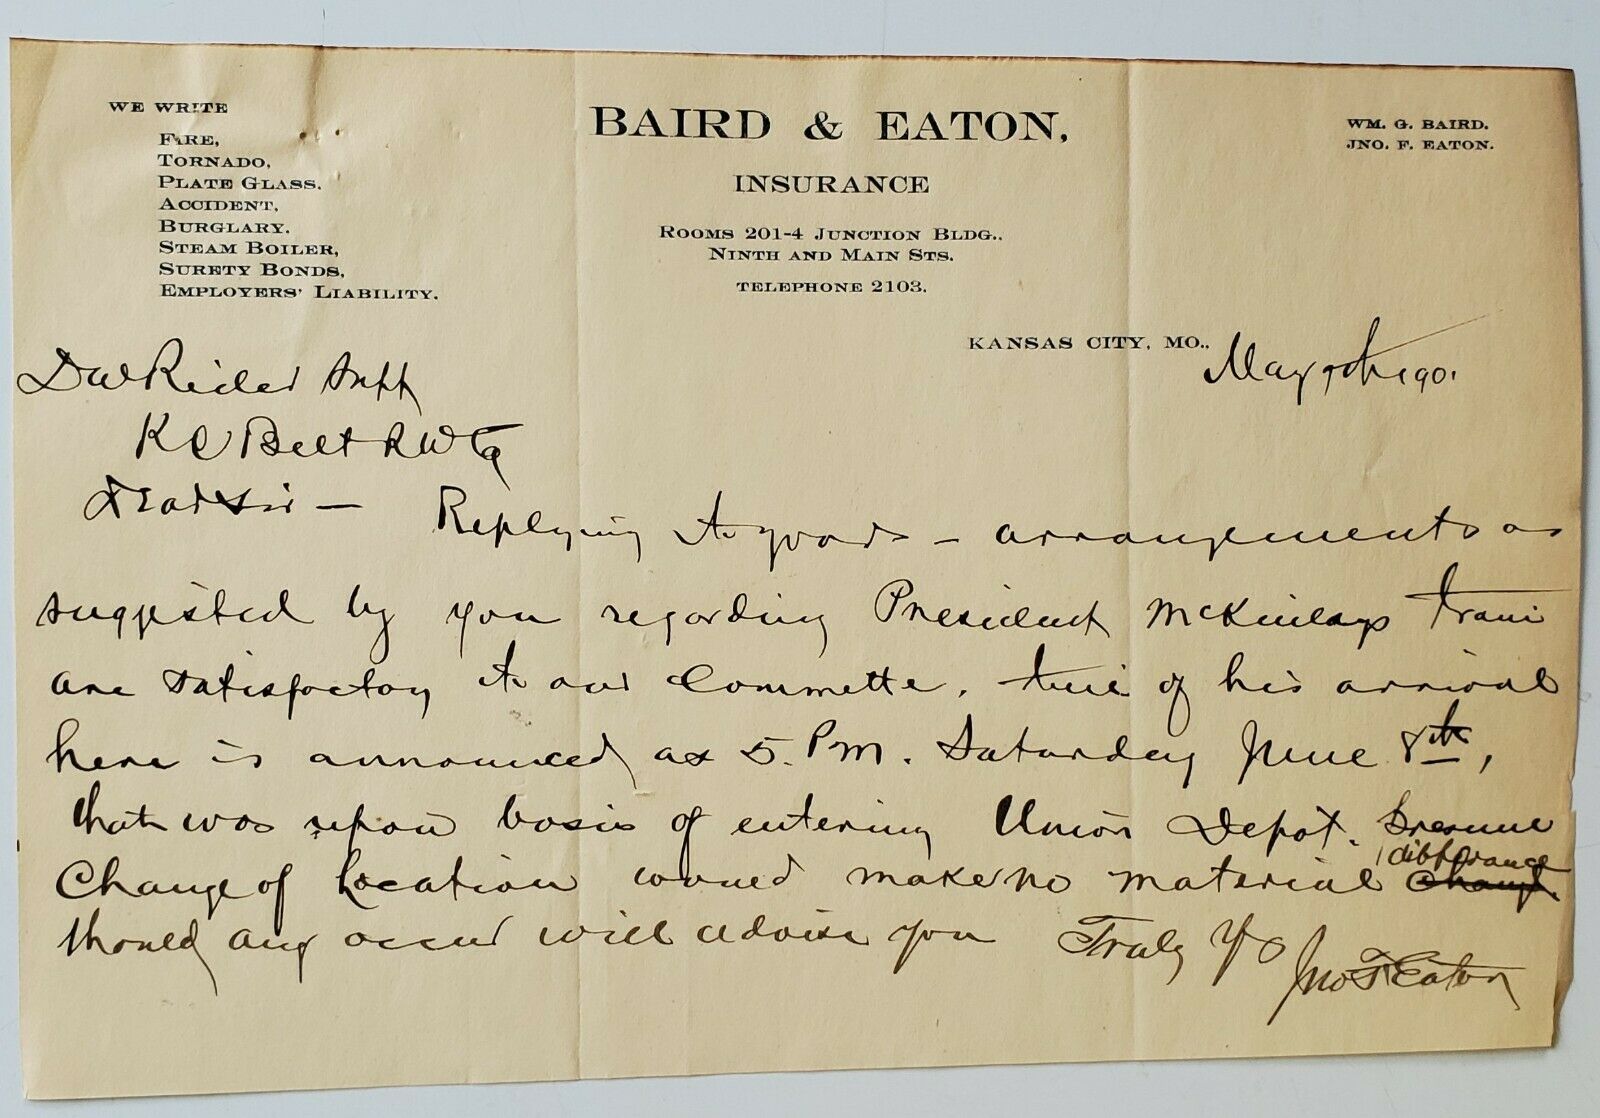 WE WRITE
FIRE,
TORNADO,
PLATE GLASS,
ACCIDENT,
BURGLARY,
STEAM BOILER,
SURETY BONDS,
EMPLOYERS' LIABILITY.
BAIRD & EATON,
INSURANCE
ROOMS 201-4 JUNCTION BLDG.,
NINTH AND MAIN STS.
TELEPHONE 2103.
WM. G. BAIRD.
JNO. F. EATON.
KANSAS CITY, MO., May
Rider Supt
K C Belt R W Co
Dear Sir —
Replying to yours — arrangements as
suggested by you regarding President McKinleys train
are satisfactory to our Committe. time of his arrival
here is announced as 5. P.M. Saturday June 8th,
that was upon basis of entering Union Depot. Presume
Change of Location would make no material differance
should any occur will advise you Truly Yrs
Jno F Eaton